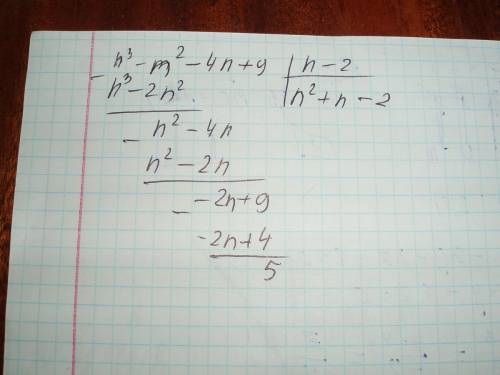 n³ - m² - 4n + 9 | n - 2
- n³ - 2n² | n² + n - 2
n² - 4n
- n² - 2n
-2n + 9
- -2n + 4
5